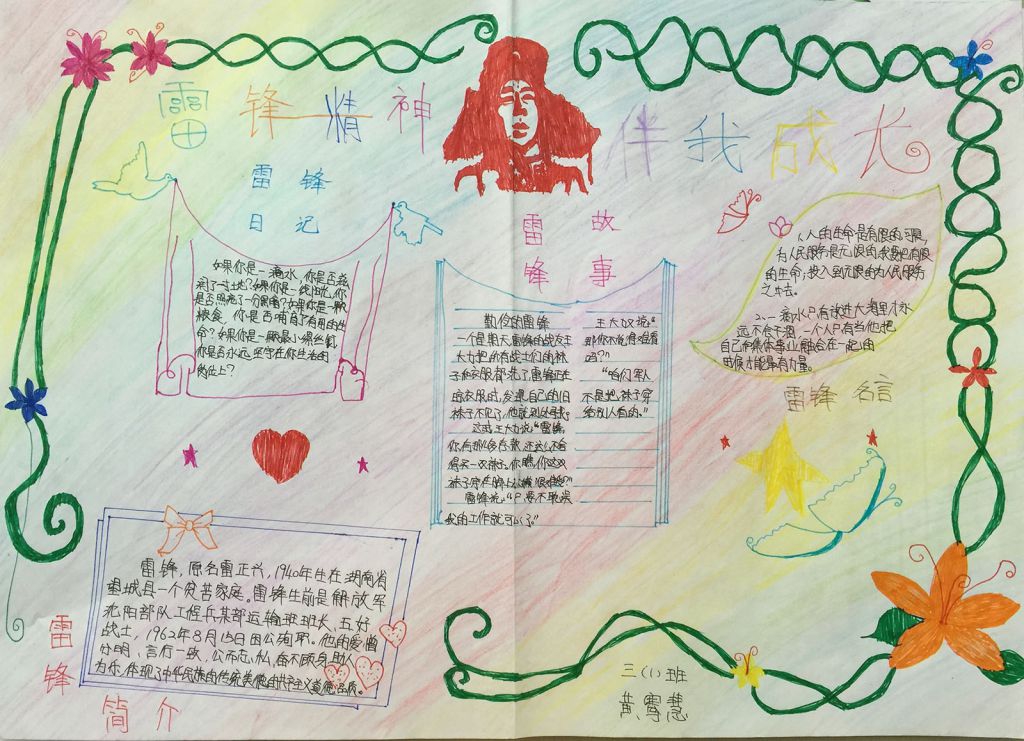 雷锋精神
伴我成长
雷锋
日记
如果你是一滴水，你是否滋
润了一寸土地？如果你是一线阳光，你
是否照亮了一分黑暗？如果你是一颗
粮食，你是否哺育了有用的生
命？如果你是一颗最小的螺丝钉，
你是否永远坚守在你生活的
岗位上？
雷故
锋事
勤俭的雷锋
一个星期天，雷锋的战友王
大力把所有战士们的袜
子和衣服都洗了，雷锋正在
晾衣服时，发现自己的旧
袜子不见了，他就到处寻找。
这时王大力说“雷锋，
你有那么多存款，还这么不舍
得买一双袜子。你瞧，你这双
袜子穿在脚上
雷锋说，“只要不耽误
我的工作就可以了。”
王大力说：“
那你不觉得难看
吗？”
“咱们军人
不是把袜子穿
给别人看的。”
1、人的生命是有限的，可是，
为人民服务是无限的，我要把有限
的生命，投入到无限的为人民服务
之中去。
2、一滴水只有放进大海里才永
远不会干涸，一个人只有当他把
自己和集体事业融合在一起的
时候才能最有力量。
雷锋名言
雷锋，原名雷正兴，1940年生在湖南省
望城县一个贫苦家庭。雷锋生前是解放军
沈阳部队工程兵某部运输班班长、五好
战士，1962年8月15日因公殉职。他的爱憎
分明、言行一致、公而忘私、奋不顾身、助人
为乐，体现了中华民族的传统美德和共产主义道德品质。
雷
锋
简介
三(1)班
黄雪慧